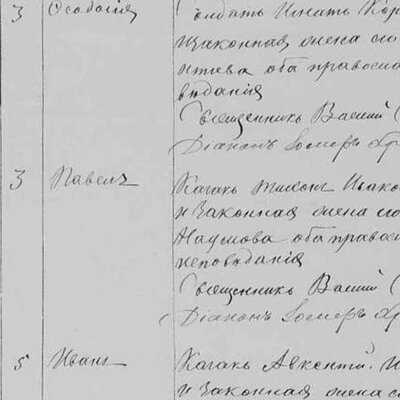 3 Феодосія Солдатъ Игнатъ
и законная жена его
оба православ
вѣданія
Священникъ Василій
Діаконъ
3 Павелъ Казакъ Тихонъ Ивако
и Законная жена его
Наумова оба правос
исповѣданія
Священникъ Василій
Діаконъ
5 Иванъ Казакъ Авксентій
и Законная жена